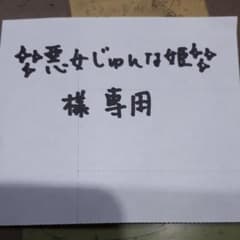 ✨悪女じゅんな姫✨
様 専用